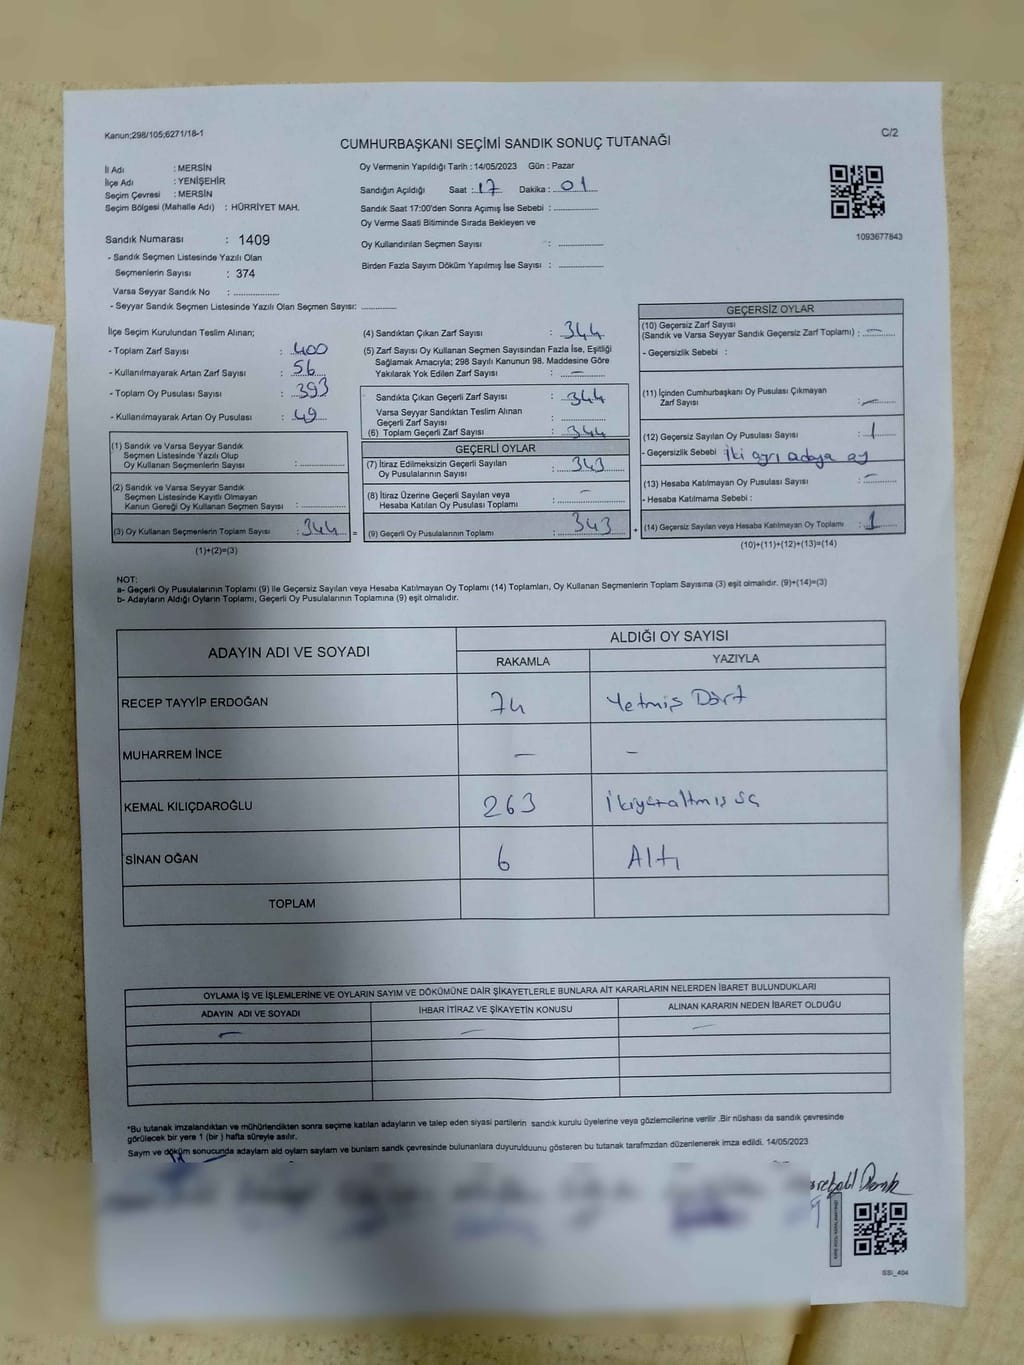 Kanun;298/105;6271/18-1
C/2
CUMHURBAŞKANI SEÇİMİ SANDIK SONUÇ TUTANAĞI
İl Adı : MERSİN
İlçe Adı : YENİŞEHİR
Seçim Çevresi : MERSİN
Seçim Bölgesi (Mahalle Adı) : HÜRRİYET MAH.
Sandık Numarası : 1409
- Sandık Seçmen Listesinde Yazılı Olan
Seçmenlerin Sayısı : 374
Varsa Seyyar Sandık No :
- Seyyar Sandık Seçmen Listesinde Yazılı Olan Seçmen Sayısı:
Oy Vermenin Yapıldığı Tarih : 14/05/2023 Gün : Pazar
Sandığın Açıldığı Saat : 17 Dakika : 01
Sandık Saat 17:00'den Sonra Açımış İse Sebebi :
Oy Verme Saati Bitiminde Sırada Bekleyen ve
Oy Kullandırılan Seçmen Sayısı :
Birden Fazla Sayım Döküm Yapılmış İse Sayısı :
1093677843
İlçe Seçim Kurulundan Teslim Alınan;
- Toplam Zarf Sayısı : 400
- Kullanılmayarak Artan Zarf Sayısı : 56
- Toplam Oy Pusulası Sayısı : 393
- Kullanılmayarak Artan Oy Pusulası : 49
(1) Sandık ve Varsa Seyyar Sandık
Seçmen Listesinde Yazılı Olup
Oy Kullanan Seçmenlerin Sayısı :
(2) Sandık ve Varsa Seyyar Sandık
Seçmen Listesinde Kayıtlı Olmayan
Kanun Gereği Oy Kullanan Seçmen Sayısı :
(3) Oy Kullanan Seçmenlerin Toplam Sayısı : 344 =
(1)+(2)=(3)
(4) Sandıktan Çıkan Zarf Sayısı : 344
(5) Zarf Sayısı Oy Kullanan Seçmen Sayısından Fazla İse, Eşitliği
Sağlamak Amacıyla; 298 Sayılı Kanunun 98. Maddesine Göre
Yakılarak Yok Edilen Zarf Sayısı : —
Sandıkta Çıkan Geçerli Zarf Sayısı : 344
Varsa Seyyar Sandıktan Teslim Alınan
Geçerli Zarf Sayısı :
(6) Toplam Geçerli Zarf Sayısı : 344
GEÇERLİ OYLAR
(7) İtiraz Edilmeksizin Geçerli Sayılan
Oy Pusulalarının Sayısı : 343
(8) İtiraz Üzerine Geçerli Sayılan veya
Hesaba Katılan Oy Pusulası Toplamı : —
(9) Geçerli Oy Pusulalarının Toplamı : 343 +
GEÇERSİZ OYLAR
(10) Geçersiz Zarf Sayısı
(Sandık ve Varsa Seyyar Sandık Geçersiz Zarf Toplamı) : —
- Geçersizlik Sebebi :
(11) İçinden Cumhurbaşkanı Oy Pusulası Çıkmayan
Zarf Sayısı : —
(12) Geçersiz Sayılan Oy Pusulası Sayısı : 1
- Geçersizlik Sebebi iki ayrı adaya oy
(13) Hesaba Katılmayan Oy Pusulası Sayısı : —
- Hesaba Katılmama Sebebi :
(14) Geçersiz Sayılan veya Hesaba Katılmayan Oy Toplamı : 1
(10)+(11)+(12)+(13)=(14)
NOT:
a- Geçerli Oy Pusulalarının Toplamı (9) ile Geçersiz Sayılan veya Hesaba Katılmayan Oy Toplamı (14) Toplamları, Oy Kullanan Seçmenlerin Toplam Sayısına (3) eşit olmalıdır. (9)+(14)=(3)
b- Adayların Aldığı Oyların Toplamı, Geçerli Oy Pusulalarının Toplamına (9) eşit olmalıdır.
ADAYIN ADI VE SOYADI
ALDIĞI OY SAYISI
RAKAMLA YAZIYLA
RECEP TAYYİP ERDOĞAN 74 Yetmiş Dört
MUHARREM İNCE — —
KEMAL KILIÇDAROĞLU 263 İkiyüzaltmış üç
SİNAN OĞAN 6 Altı
TOPLAM
OYLAMA İŞ VE İŞLEMLERİNE VE OYLARIN SAYIM VE DÖKÜMÜNE DAİR ŞİKAYETLERLE BUNLARA AİT KARARLARIN NELERDEN İBARET BULUNDUKLARI
ADAYIN ADI VE SOYADI İHBAR İTİRAZ VE ŞİKAYETİN KONUSU ALINAN KARARIN NEDEN İBARET OLDUĞU
— — —
*Bu tutanak imzalandıktan ve mühürlendikten sonra seçime katılan adayların ve talep eden siyasi partilerin sandık kurulu üyelerine veya gözlemcilerine verilir .Bir nüshası da sandık çevresinde
görülecek bir yere 1 (bir ) hafta süreyle asılır.
Sayım ve döküm sonucunda adaylam ald oylam saylam ve bunlam sandk çevresinde bulunanlara duyurulduunu gösteren bu tutanak tarafmzdan düzenlenerek imza edildi. 14/05/2023
SSI_404